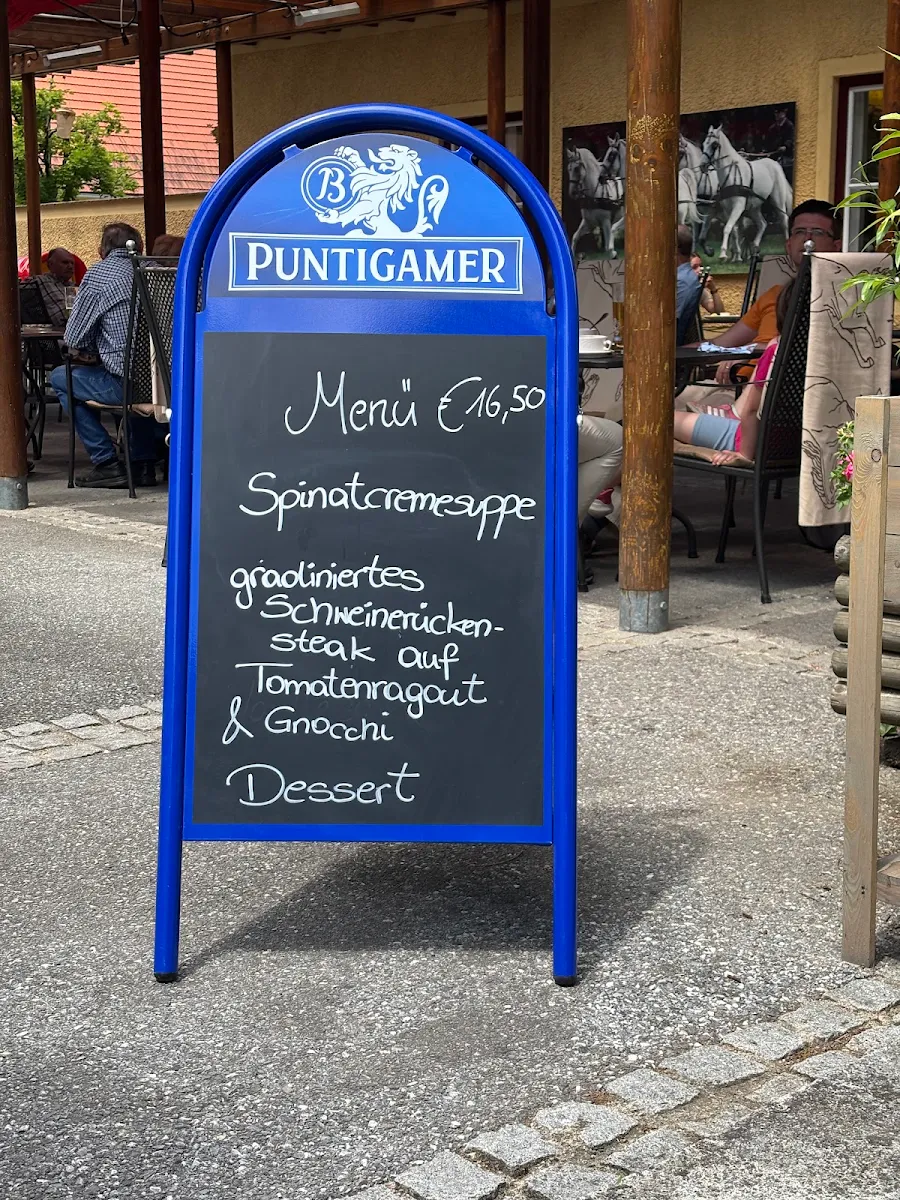 B
PUNTIGAMER
Menü € 16,50
Spinatcremesuppe
graoliniertes
Schweinerücken-
steak auf
Tomatenragout
& Gnocchi
Dessert